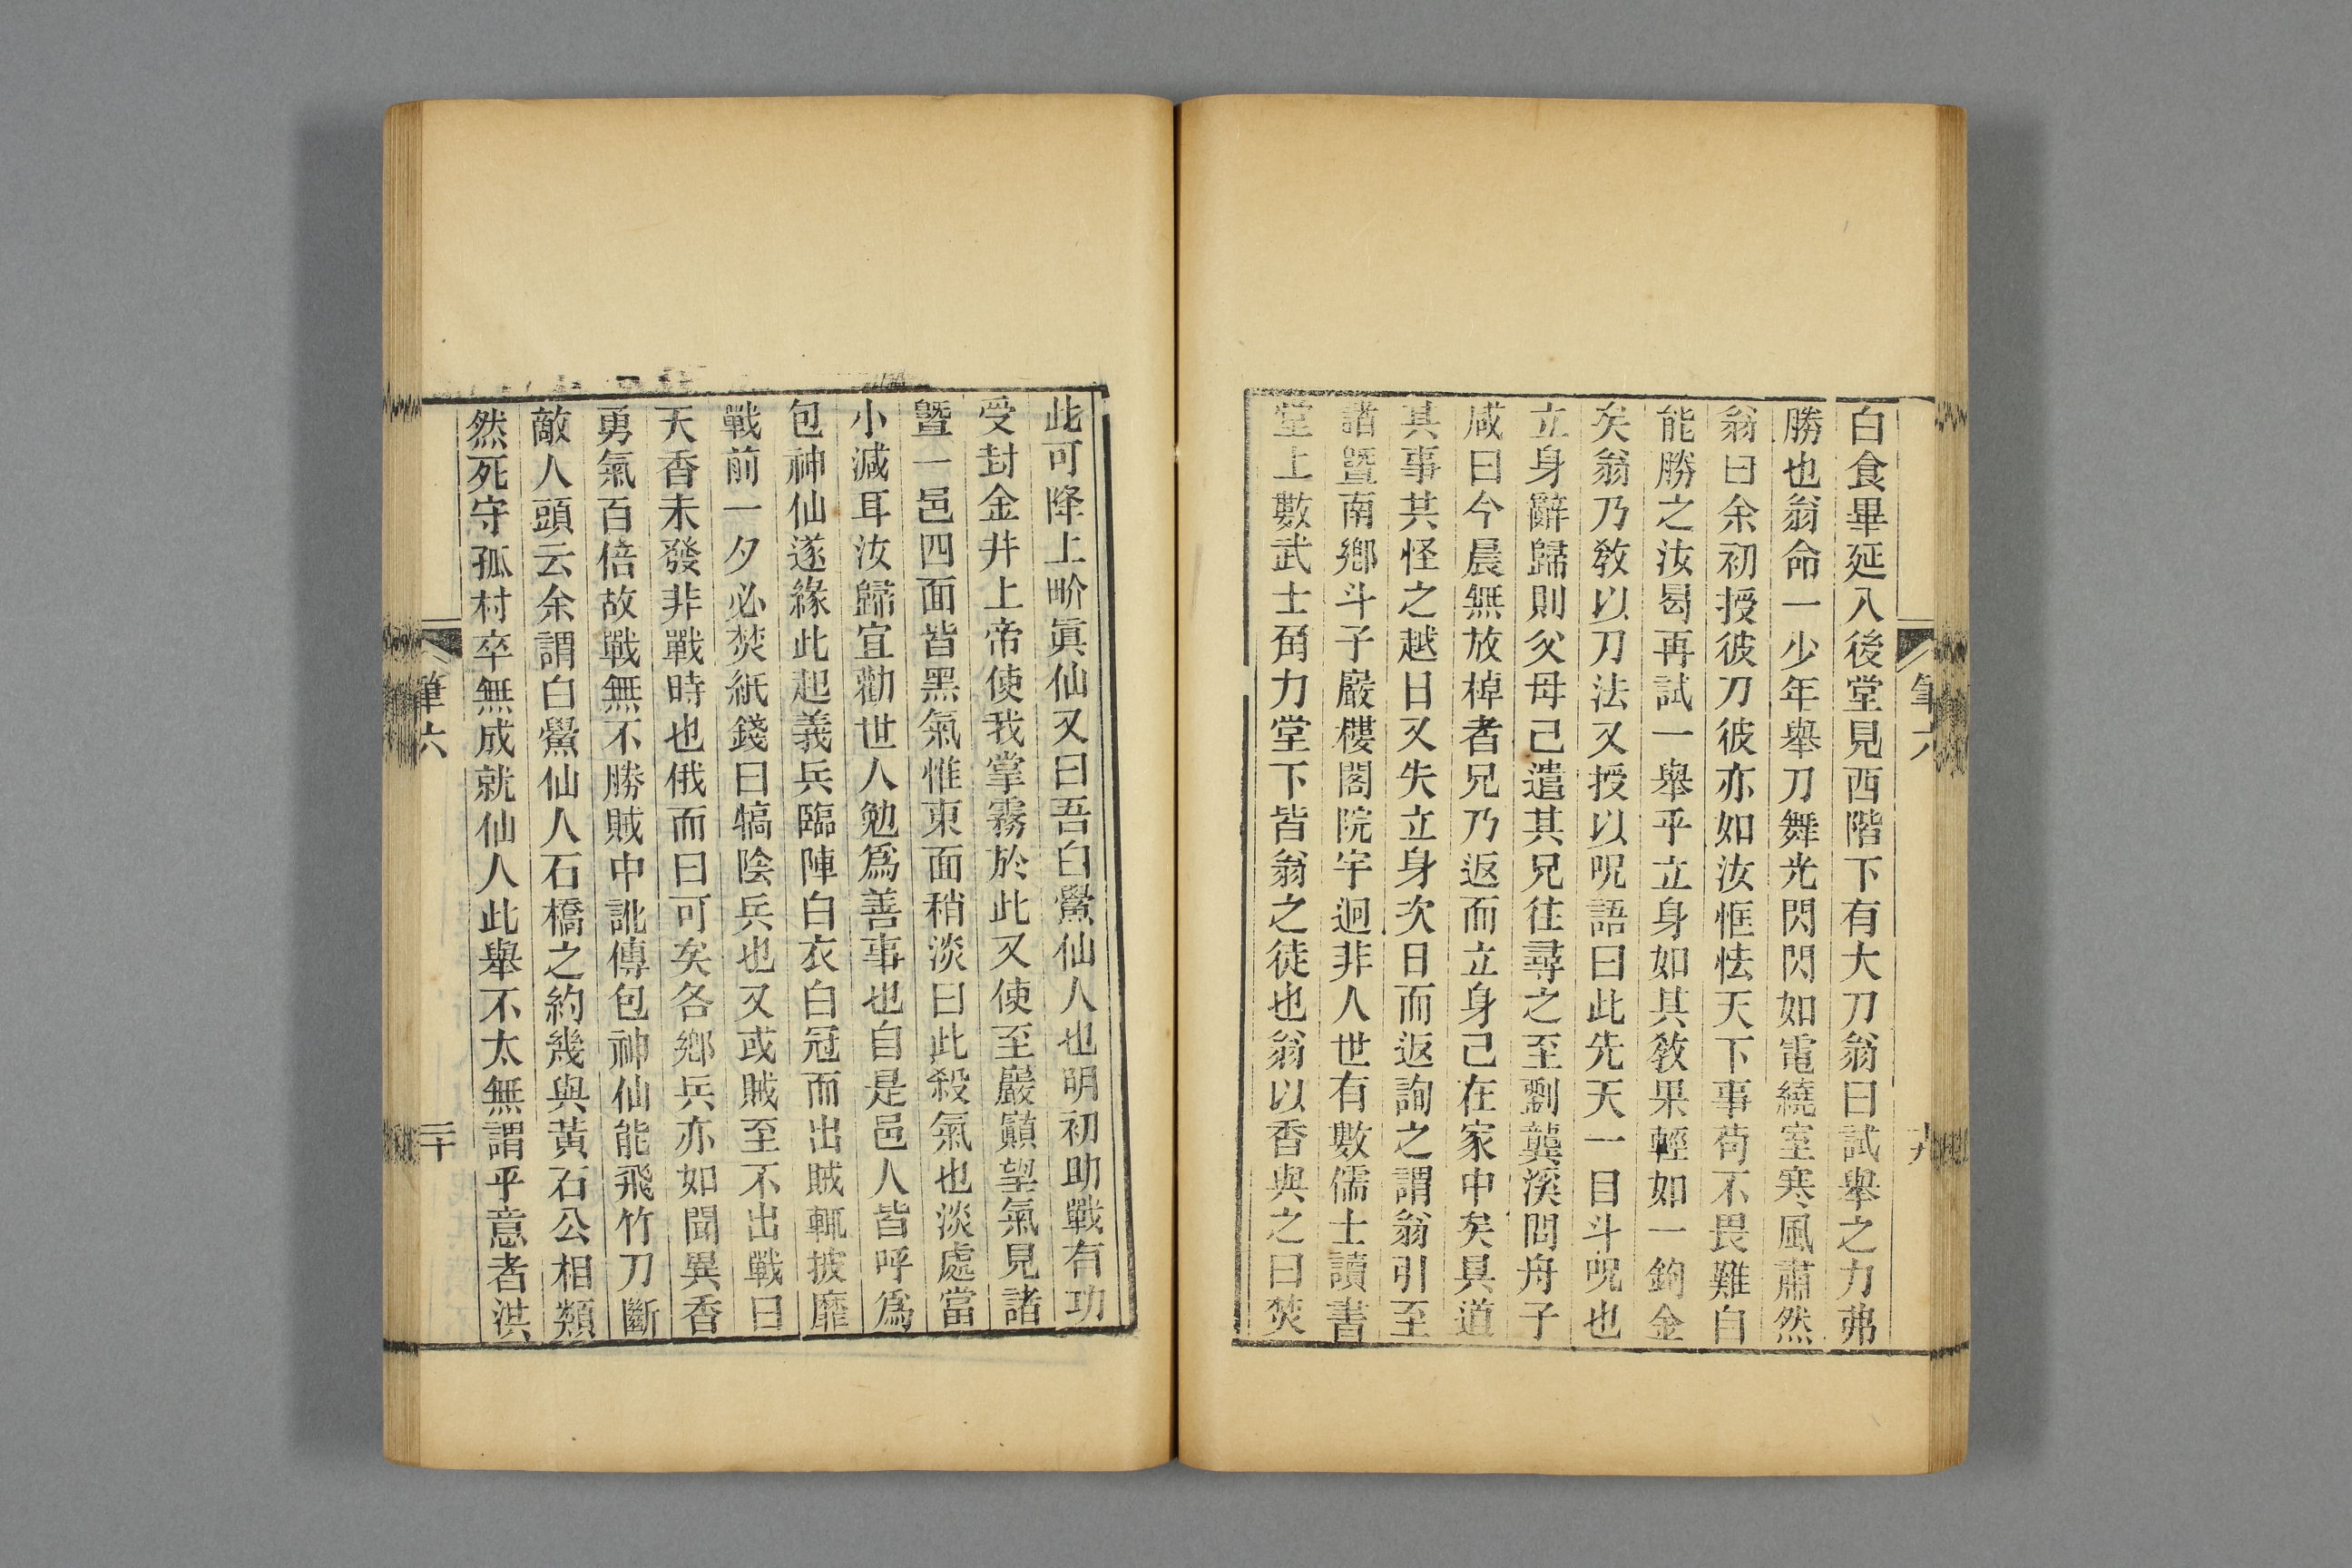 白食畢延入後堂見西階下有大刀翁曰試舉之力弗
勝也翁命一少年舉刀舞光閃閃如電繞室寒風肅然
翁曰余初授彼刀彼亦如汝恇怯天下事苟不畏難自
能勝之汝曷再試一舉乎立身如其敎果輕如一鉤金
矣翁乃敎以刀法又授以呪語曰此先天一目斗呪也
立身辭歸則父母己遣其兄往尋之至劉龔溪問舟子
咸曰今晨無放棹者兄乃返而立身己在家中矣具道
其事共怪之越日又失立身次日而返詢之謂翁引至
諸曁南鄕斗子巖樓閣院宇迥非人世有數儒士讀書
堂上數武士角力堂下皆翁之徒也翁以香與之曰焚
筆六
十九
此可降上界眞仙又曰吾白鷽仙人也明初助戰有功
受封金井上帝使我掌霧於此又使至巖巓望氣見諸
曁一邑四面皆黑氣惟東面稍淡曰此殺氣也淡處當
小減耳汝歸宜勸世人勉爲善事也自是邑人皆呼爲
包神仙遂緣此起義兵臨陣白衣白冠而出賊輒披靡
戰前一夕必焚紙錢曰犒陰兵也又或賊至不出戰曰
天香未發非戰時也俄而曰可矣各鄕兵亦如聞異香
勇氣百倍故戰無不勝賊中訛傳包神仙能飛竹刀斷
敵人頭云余謂白鷽仙人石橋之約幾與黃石公相類
然死守孤村卒無成就仙人此舉不太無謂乎意者洪
筆六
二十